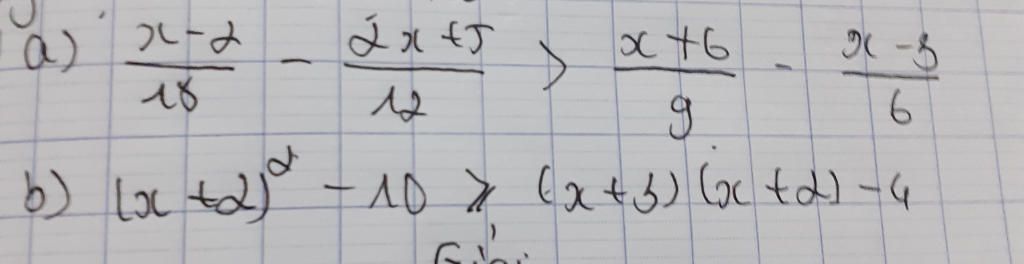 a) (x-2)/18 - (2x+5)/12 > (x+6)/9 - (x-3)/6
b) (x+2)² - 10 ≥ (x+3)(x+2) - 4